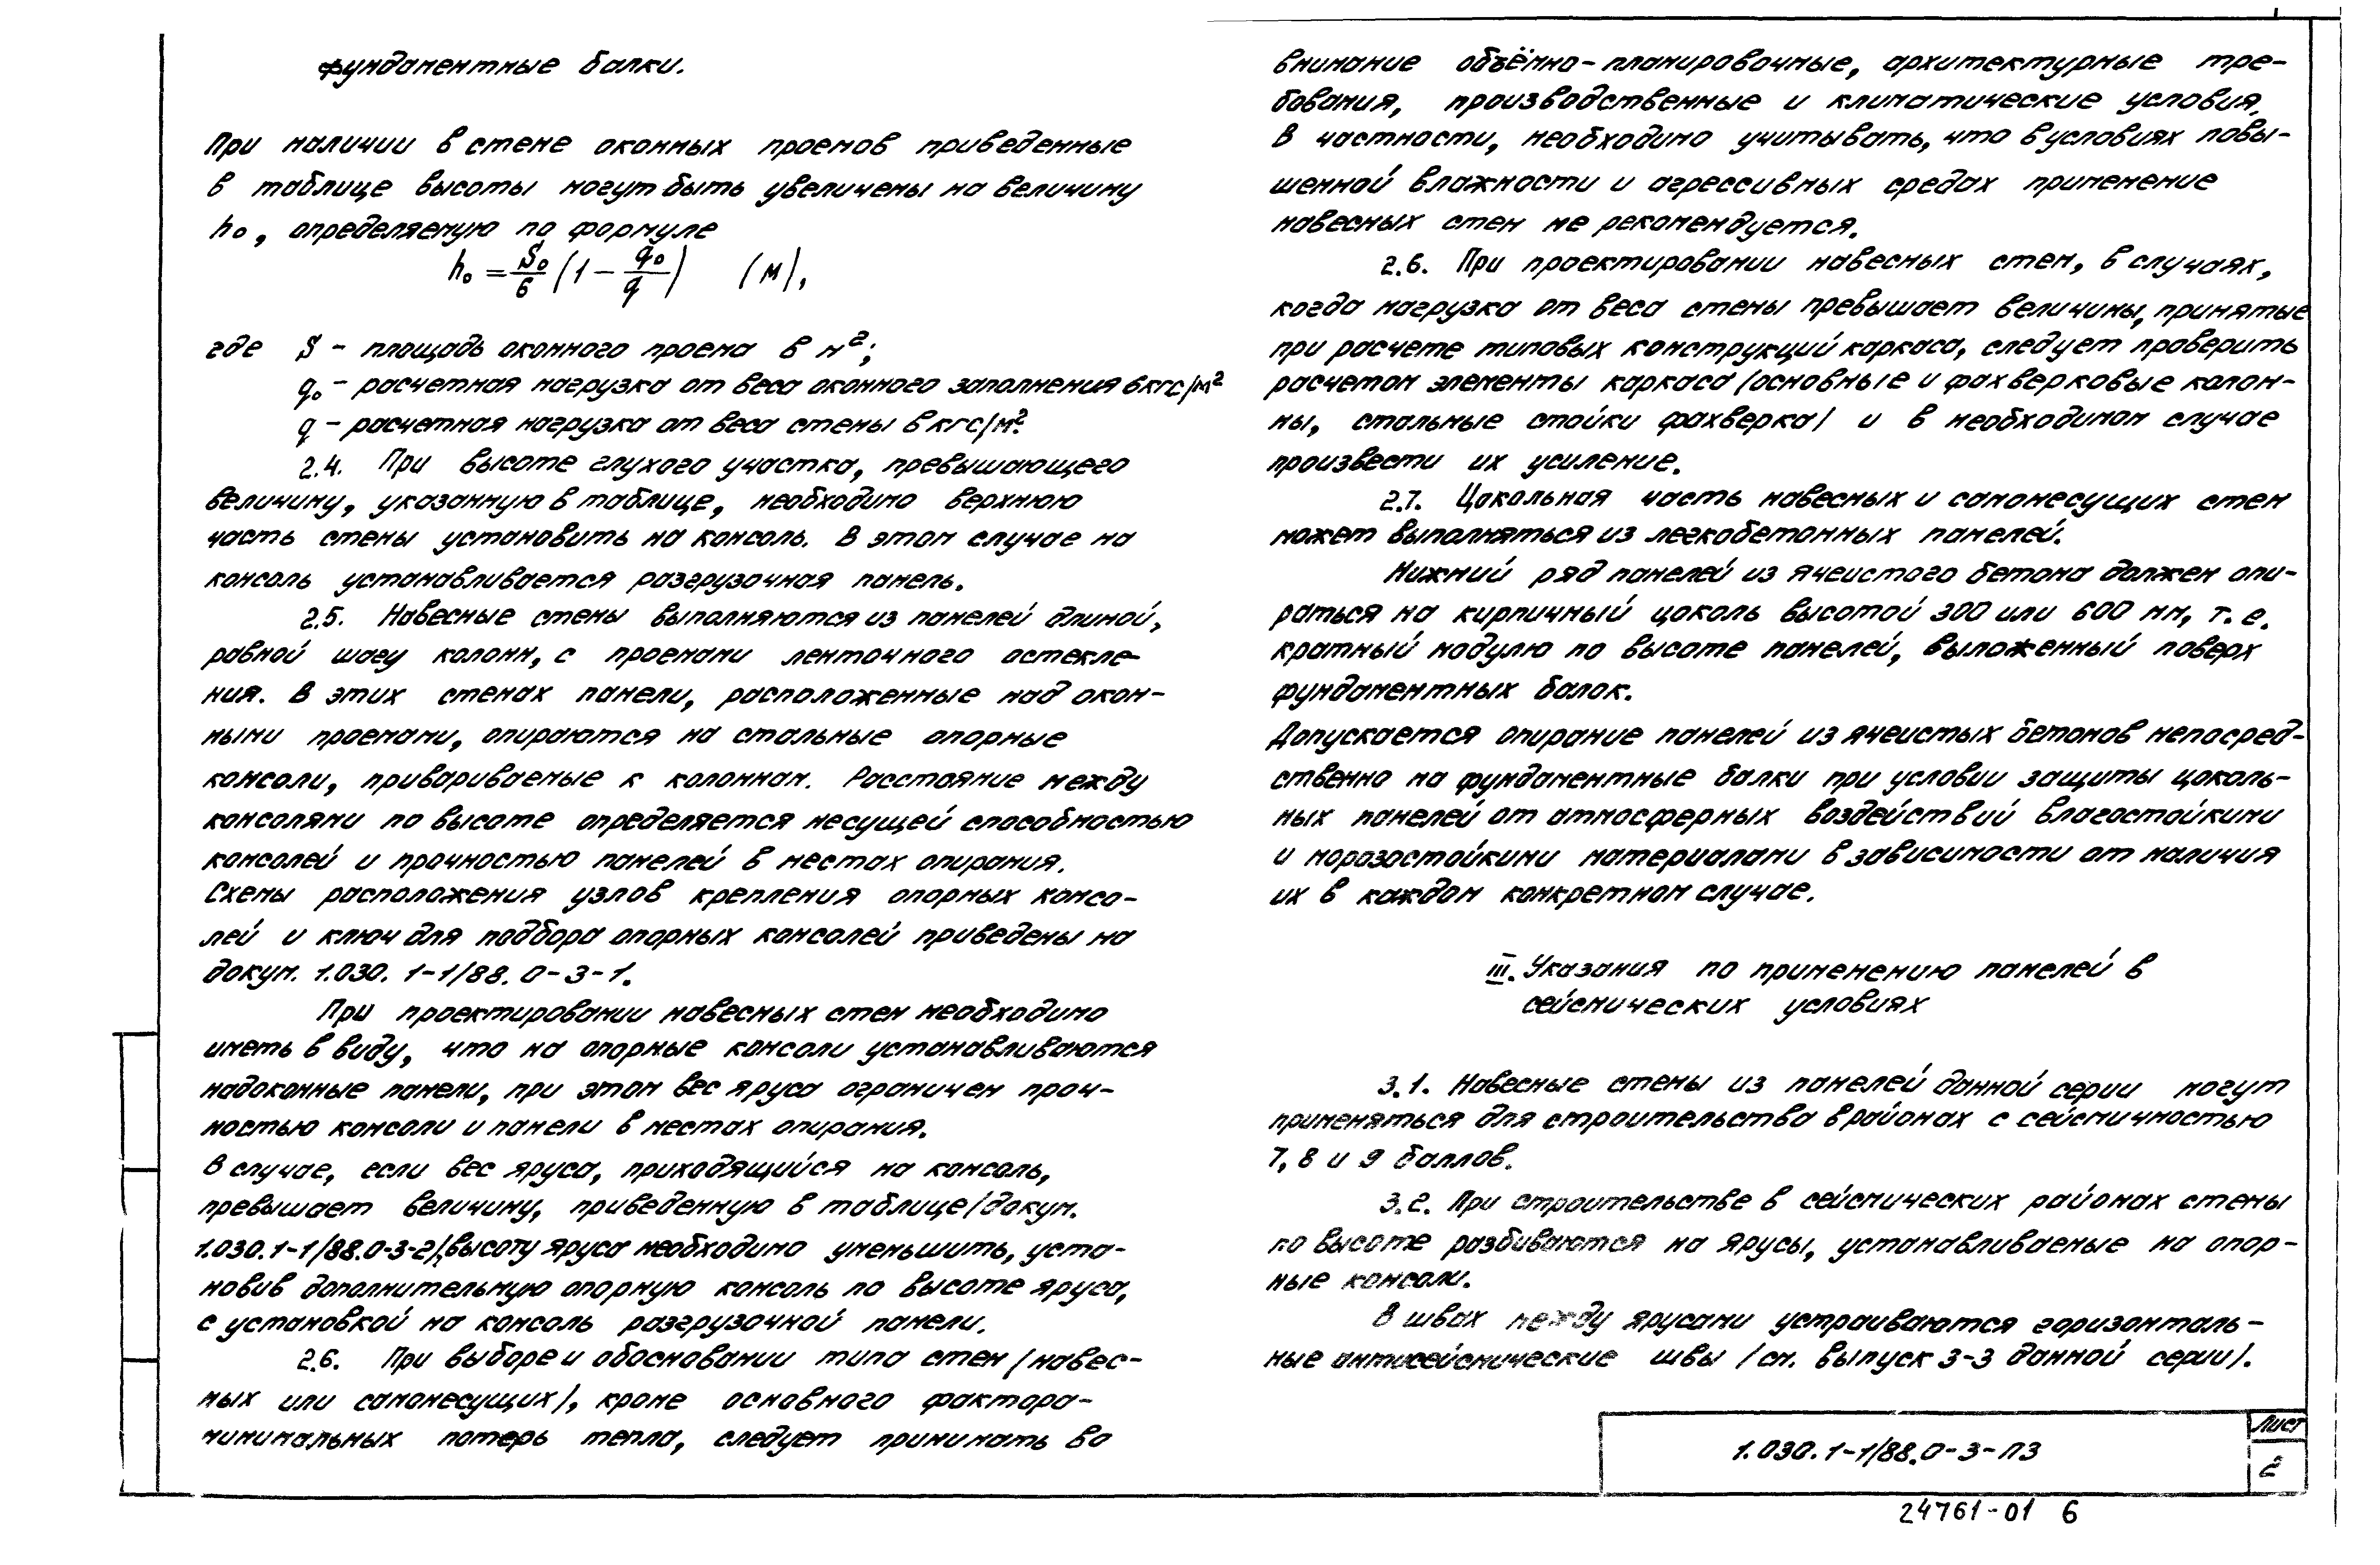 фундаментные балки.
При наличии в стене оконных проемов приведенные
в таблице высоты могут быть увеличены на величину
h₀, определяемую по формуле
h₀ = S₀/6 (1 − q₀/q) (м),
где S - площадь оконного проема в м²;
q₀ - расчетная нагрузка от веса оконного заполнения в кгс/м²
q - расчетная нагрузка от веса стены в кгс/м².
2.4. При высоте глухого участка, превышающего
величину, указанную в таблице, необходимо верхнюю
часть стены установить на консоль. В этом случае на
консоль устанавливается разгрузочная панель.
2.5. Навесные стены выполняются из панелей длиной,
равной шагу колонн, с проемами ленточного остекле-
ния. В этих стенах панели, расположенные над окон-
ными проемами, опираются на стальные опорные
консоли, привариваемые к колоннам. Расстояние между
консолями по высоте определяется несущей способностью
консолей и прочностью панелей в местах опирания.
Схемы расположения узлов крепления опорных консо-
лей и ключ для подбора опорных консолей приведены на
докум. 1.030. 1-1/88. 0-3-1.
При проектировании навесных стен необходимо
иметь в виду, что на опорные консоли устанавливаются
надоконные панели, при этом вес яруса ограничен проч-
ностью консоли и панели в местах опирания.
В случае, если вес яруса, приходящийся на консоль,
превышает величину, приведенную в таблице /докум.
1.030.1-1/88.0-3-2/, высоту яруса необходимо уменьшить, уста-
новив дополнительную опорную консоль по высоте яруса,
с установкой на консоль разгрузочной панели.
2.6. При выборе и обосновании типа стен /навес-
ных или самонесущих/, кроме основного фактора-
минимальных потерь тепла, следует принимать во
внимание объёмно-планировочные, архитектурные тре-
бования, производственные и климатические условия.
В частности, необходимо учитывать, что в условиях повы-
шенной влажности и агрессивных средах применение
навесных стен не рекомендуется.
2.6. При проектировании навесных стен, в случаях,
когда нагрузка от веса стены превышает величины, принятые
при расчете типовых конструкций каркаса, следует проверить
расчетом элементы каркаса /основные и фахверковые колон-
ны, стальные стойки фахверка/ и в необходимом случае
произвести их усиление.
2.7. Цокольная часть навесных и самонесущих стен
может выполняться из легкобетонных панелей.
Нижний ряд панелей из ячеистого бетона должен опи-
раться на кирпичный цоколь высотой 300 или 600 мм, т.е.
кратный модулю по высоте панелей, выложенный поверх
фундаментных балок.
Допускается опирание панелей из ячеистых бетонов непосред-
ственно на фундаментные балки при условии защиты цоколь-
ных панелей от атмосферных воздействий влагостойкими
и морозостойкими материалами в зависимости от наличия
их в каждом конкретном случае.
III. Указания по применению панелей в
сейсмических условиях
3.1. Навесные стены из панелей данной серии могут
применяться для строительства в районах с сейсмичностью
7, 8 и 9 баллов.
3.2. При строительстве в сейсмических районах стены
по высоте разбиваются на ярусы, устанавливаемые на опор-
ные консоли.
В швах между ярусами устраиваются горизонталь-
ные антисейсмические швы /см. выпуск 3-3 данной серии/.
1.030.1-1/88.0-3-ПЗ
Лист
2
24761-01 6